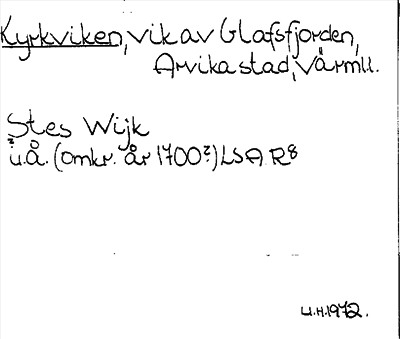 Kyrkviken, vik av Glafsfjorden,
Arvika stad, Värml.
Stes Wijk
u.å. (omkr. år 1700?) LSA R8
U.H. 1972.